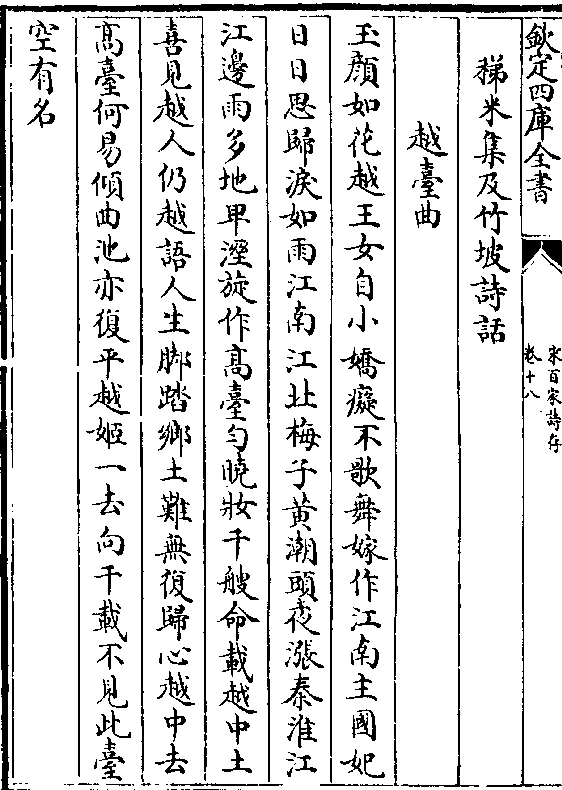 欽定四庫全書
宋百家詩存
卷十八
稊米集及竹坡詩話
越臺曲
玉顔如花越王女自小嬌癡不歌舞嫁作江南主國妃
日日思歸淚如雨江南江北梅子黄潮頭夜漲秦淮江
江邊雨多地卑溼旋作髙臺勻曉妝千艘命載越中土
喜見越人仍越語人生脚踏鄉土難無復歸心越中去
髙臺何易傾曲池亦復平越姬一去向千載不見此臺
空有名